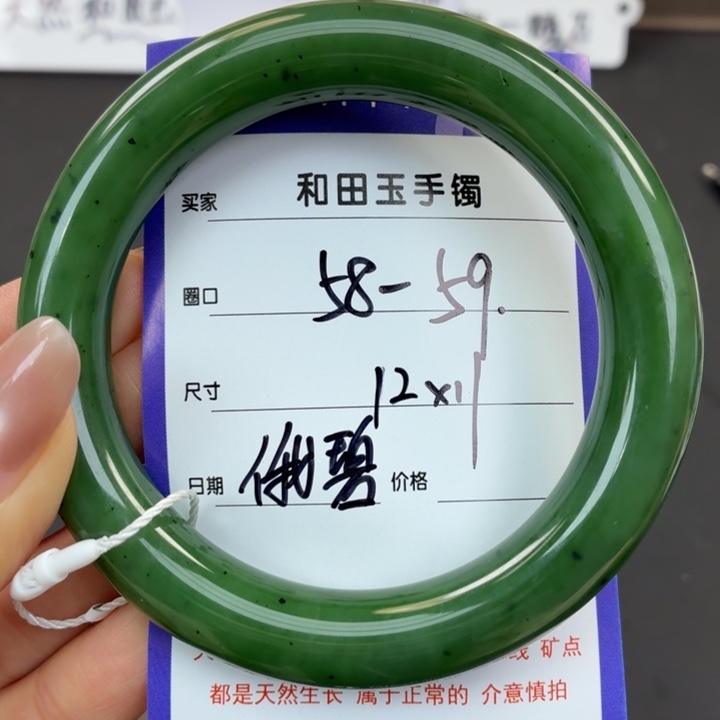 和田玉手镯
买家
圈口 58-59.
尺寸 12x11
日期 俄碧 价格
线 矿点
都是天然生长 属于正常的 介意慎拍